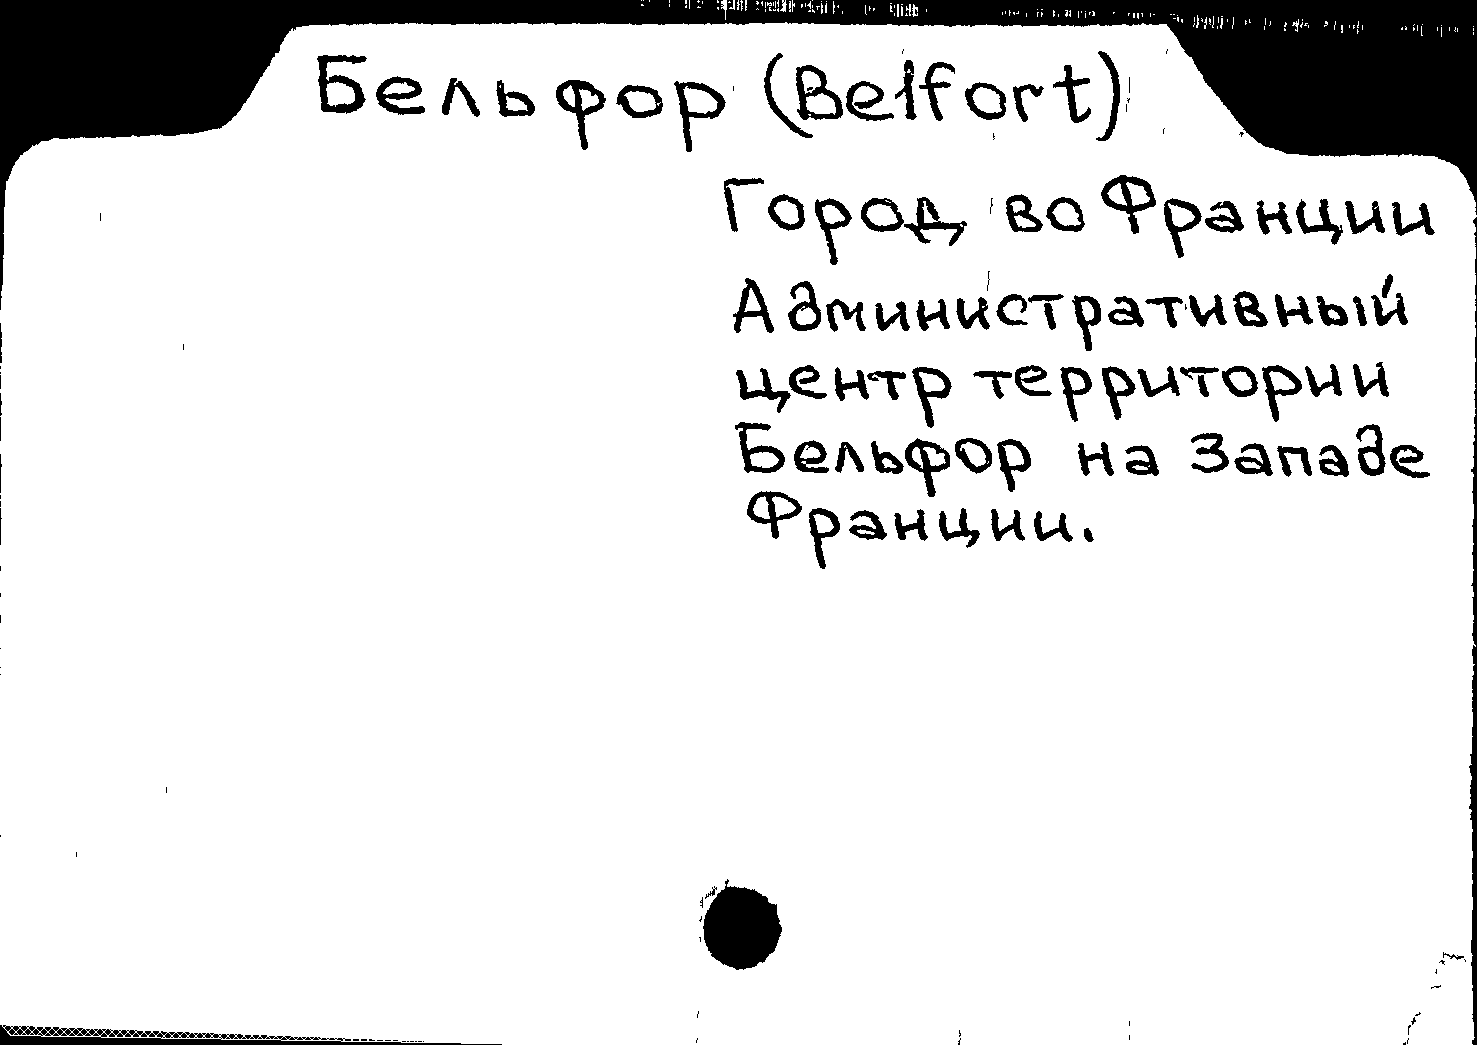 Бельфор (Belfort)
Город во Франции
Административный
центр территории
Бельфор на Западе
Франции.